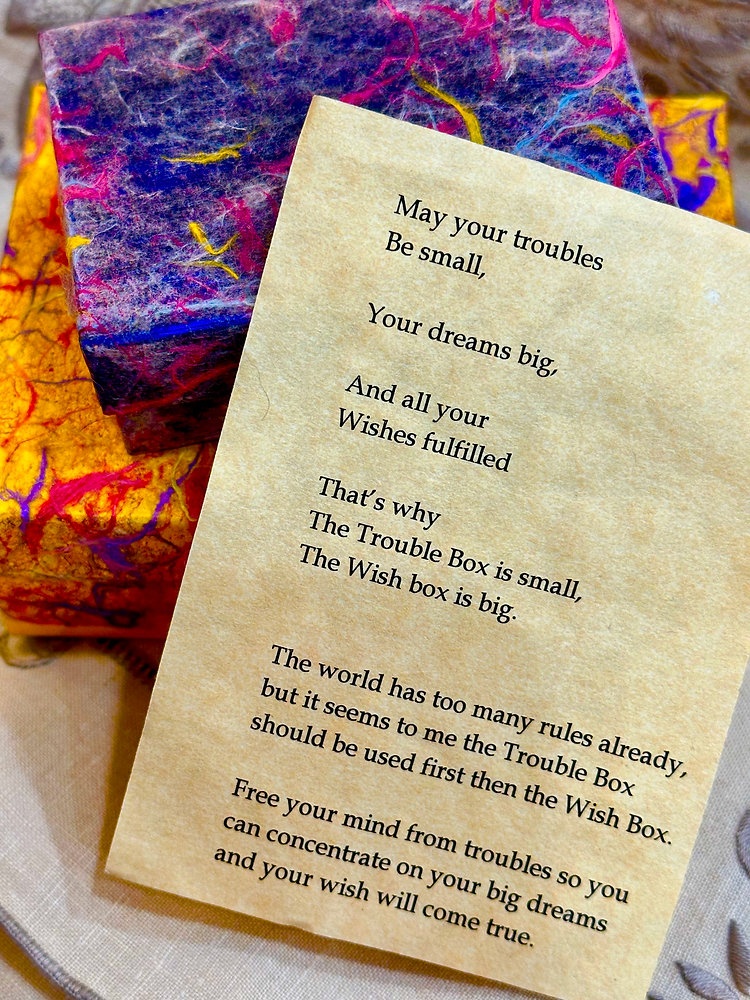 May your troubles
Be small,
Your dreams big,
And all your
Wishes fulfilled
That's why
The Trouble Box is small,
The Wish box is big.
The world has too many rules already,
but it seems to me the Trouble Box
should be used first then the Wish Box.
Free your mind from troubles so you
can concentrate on your big dreams
and your wish will come true.